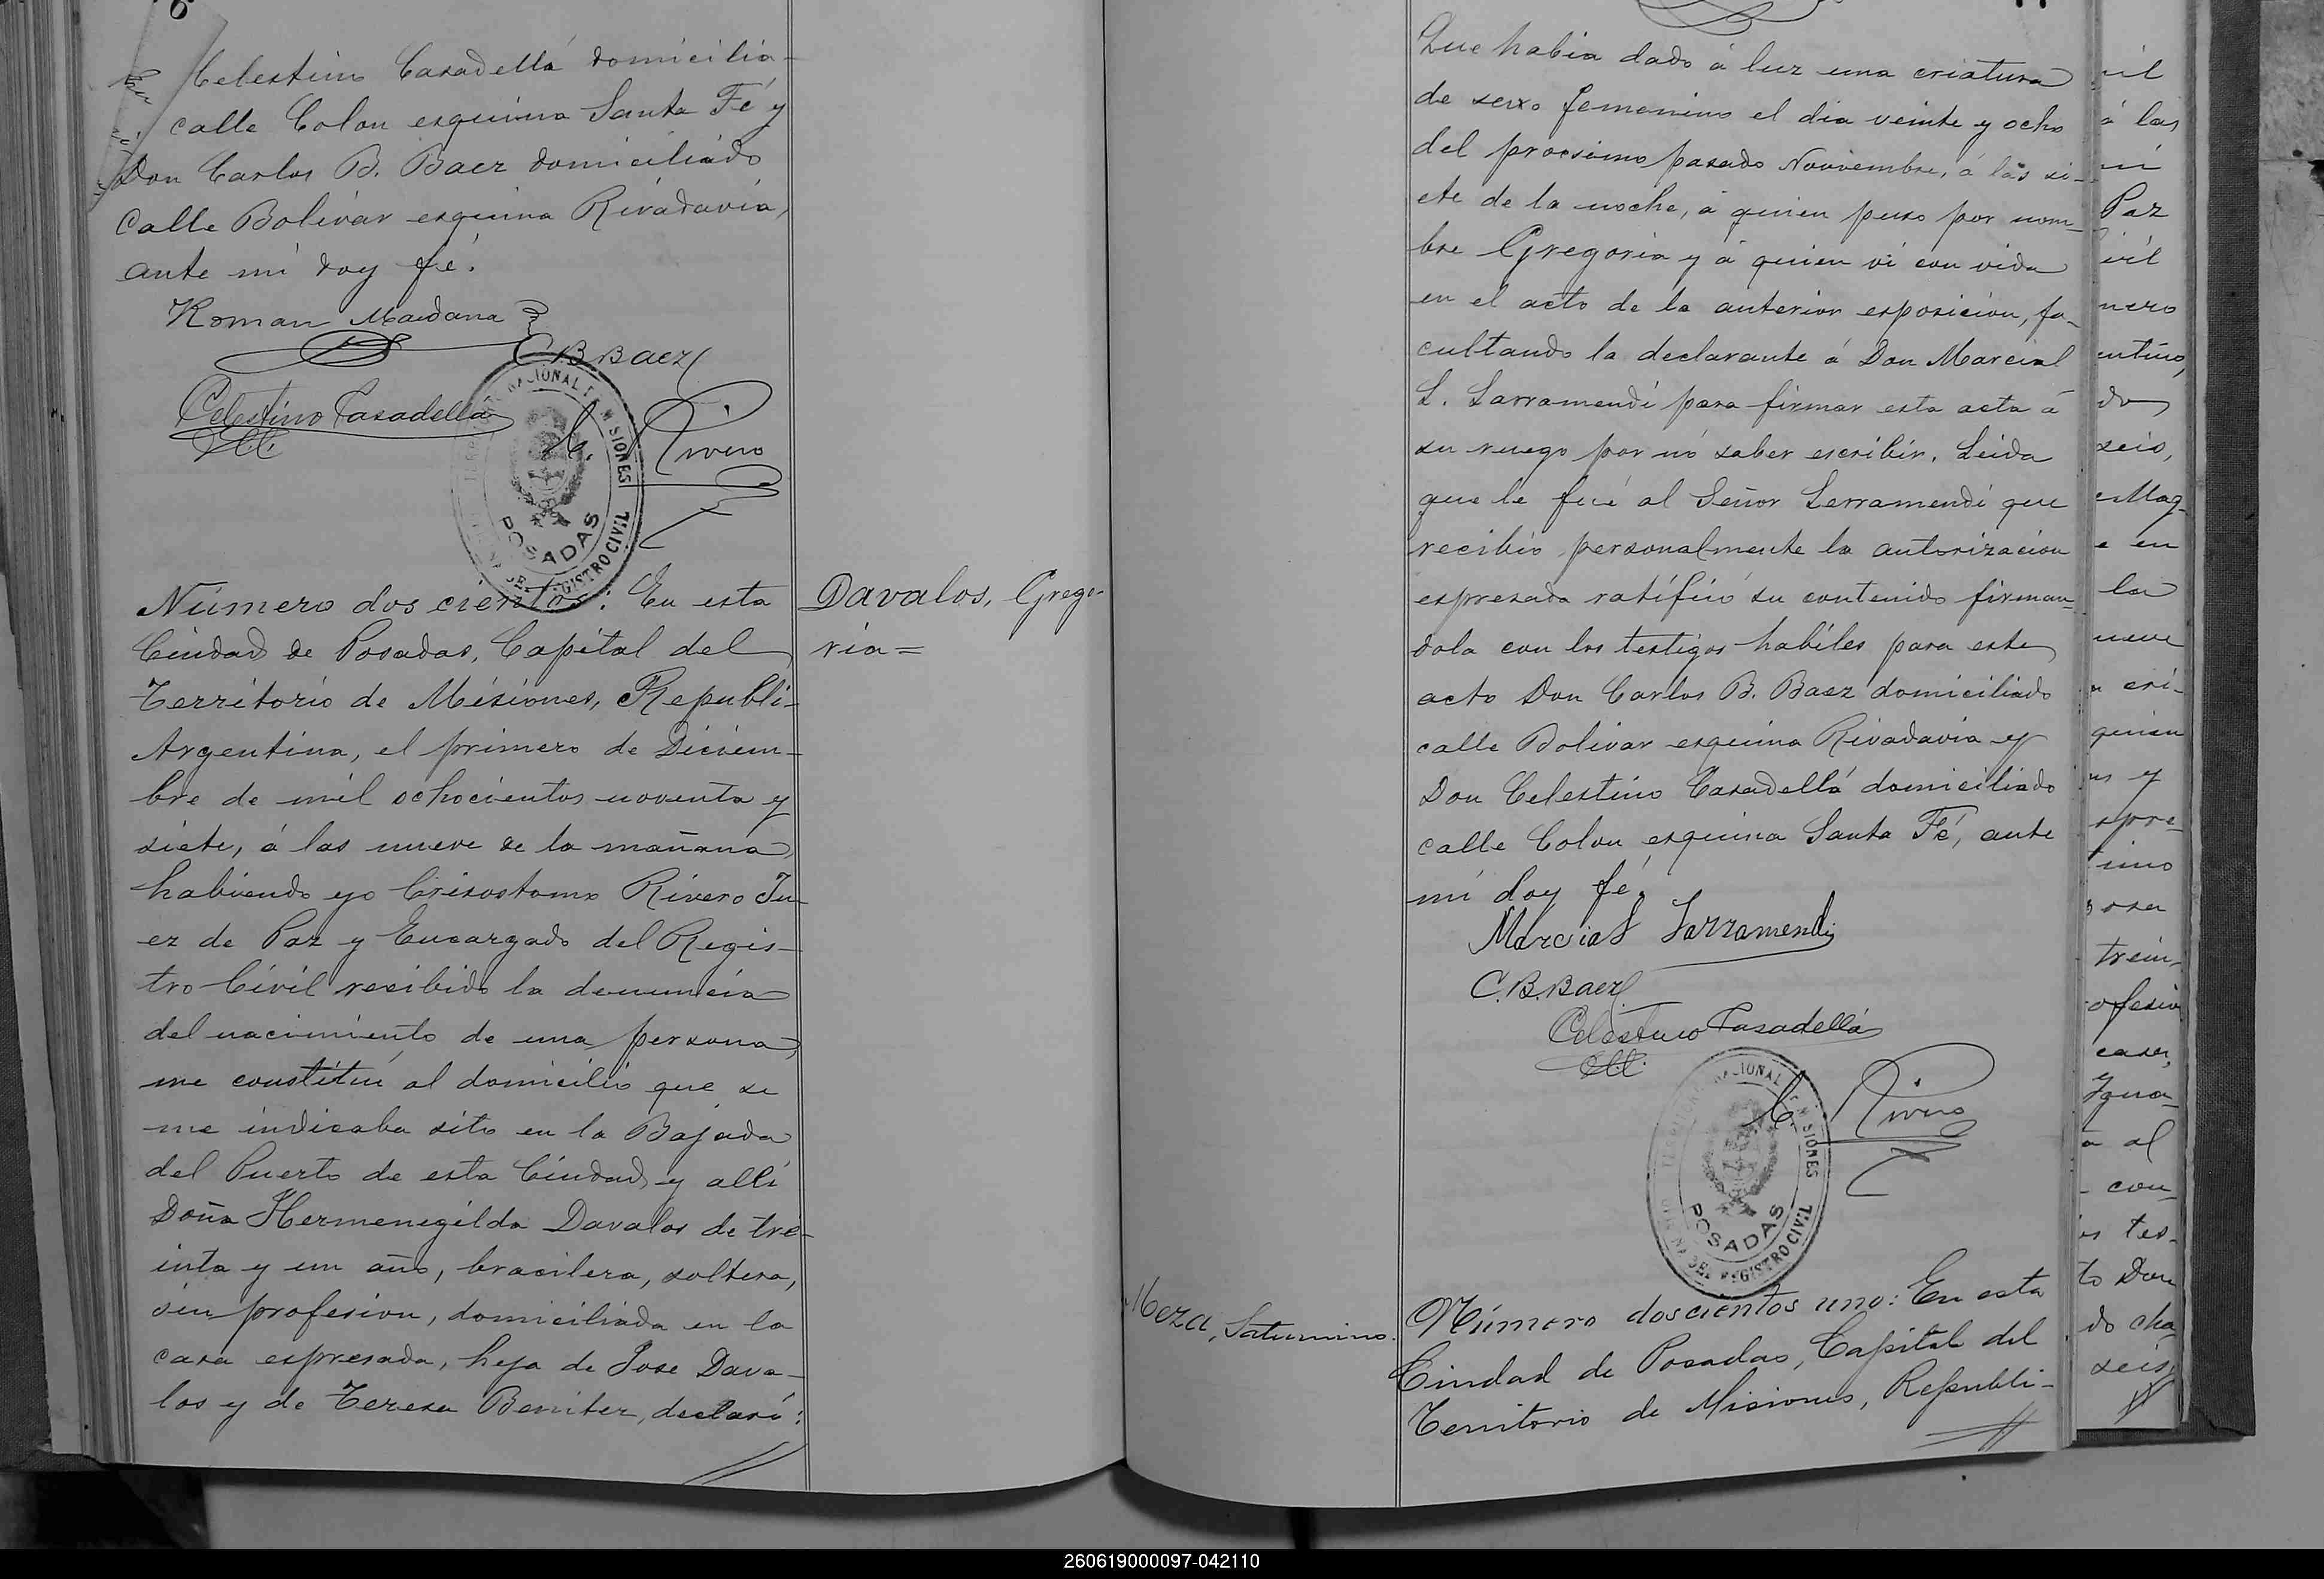 Celestino Casadellá domicilia-
calle Colon esquina Santa Fé y
Don Carlos B. Baez domiciliado
Calle Bolivar esquina Rivadavia,
ante mi doy fé.
Roman Maidana
C.B. Baez
Celestino Casadellá
C. Rivero
POSADAS
REGISTRO CIVIL
Número dos cientos: En esta
Ciudad de Posadas, Capital del
Territorio de Misiones, Republi-
Argentina, el primero de Diciem-
bre de mil ochocientos noventa y
siete, á las nueve de la mañana
habiendo yo Crisostomo Rivero Ju-
ez de Paz y Encargado del Regis-
tro Civil recibido la denuncia
del nacimiento de una persona,
me constituí al domicilio que se
me indicaba sito en la Bajada
del Puerto de esta Ciudad y allí
Doña Hermenegilda Davalos de tre-
inta y un año, brasilera, soltera,
sin profesion, domiciliada en la
casa espresada, hija de Jose Dava-
los y de Teresa Benitez, declaró:
Davalos, Grego-
ria=
Que habia dado á luz una criatura
de sexo femenino el dia veinte y ocho
del procsimo pasado Noviembre, á las si-
ete de la noche, á quien puso por nom-
bre Gregoria y á quien ví con vida
en el acto de la anterior esposicion, fa-
cultando la declarante á Don Marcial
L. Larramendi para firmar esta acta á
su ruego por nó saber escribir. Leida
que le fué al Señor Larramendi que
recibió personalmente la autorizacion
espresada ratificó su contenido firman-
dola con los testigos habiles para este
acto Don Carlos B. Baez domiciliado
calle Bolivar esquina Rivadavia y
Don Celestino Casadellá domiciliado
calle Colon esquina Santa Fé, ante
mí doy fé.
Marcial Larramendi
C.B. Baez
Celestino Casadellá
C. Rivero
POSADAS
DEL REGISTRO CIVIL
Meza, Saturnino.
Número doscientos uno: En esta
Ciudad de Posadas, Capital del
Territorio de Misiones, Republi-
á las
Paz
nero
do
seis,
e en
la
quien
trein-
casa,
a al
to Don
seis,
260619000097-042110